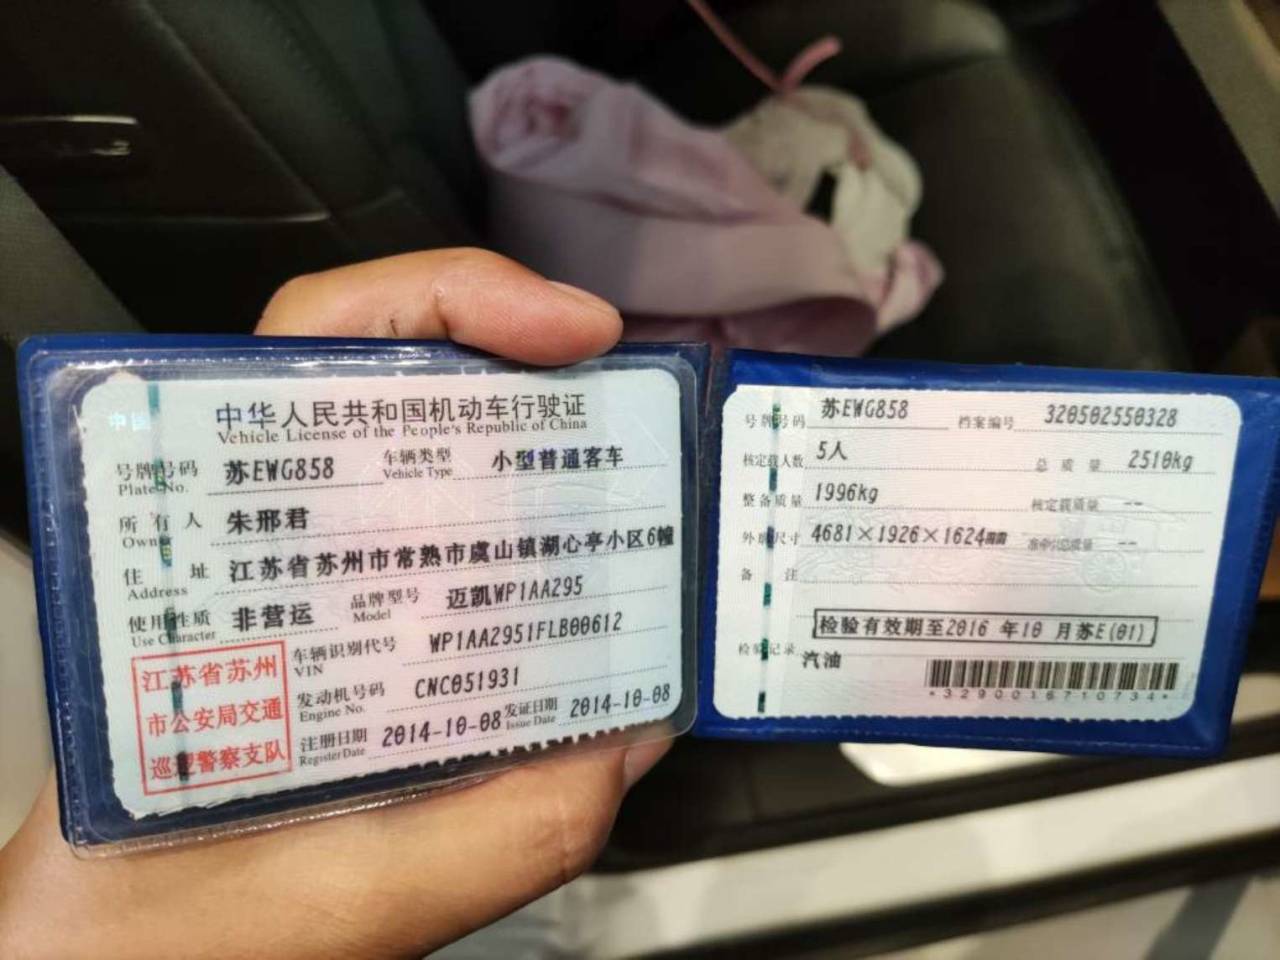 中国
中华人民共和国机动车行驶证
Vehicle License of the People's Republic of China
号牌号码 苏EWG858 车辆类型 小型普通客车
Plate No. Vehicle Type
所有人 朱邢君
Owner
住址 江苏省苏州市常熟市虞山镇湖心亭小区6幢
Address
使用性质 非营运 品牌型号 迈凯WP1AA295
Use Character Model
江苏省苏州
市公安局交通
巡逻警察支队
车辆识别代号 WP1AA2951FLB00612
VIN
发动机号码 CNC051931
Engine No.
注册日期 2014-10-08 发证日期 2014-10-08
Register Date Issue Date
号牌号码 苏EWG858 档案编号 320502550328
核定载人数 5人 总质量 2510kg
整备质量 1996kg 核定载质量 --
外廓尺寸 4681×1926×1624 准牵引总质量 --
备注
检验有效期至2016 年10 月苏E(01)
检验记录 汽油
*3290016710734*